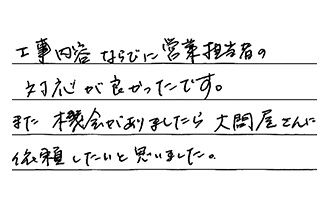 工事内容ならびに営業担当者の
対応が良かったです。
また機会がありましたら大問屋さんに
依頼したいと思いました。